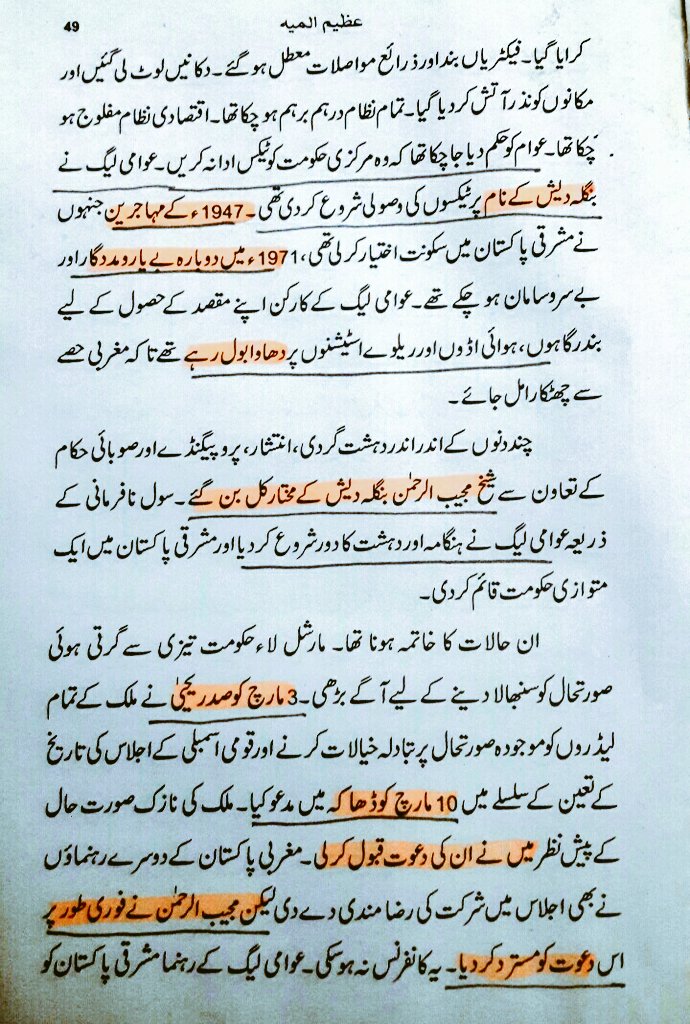 49
عظیم المیہ
کرایا گیا۔ فیکٹریاں بند اور ذرائع مواصلات معطل ہو گئے۔ دکانیں لوٹ لی گئیں اور
مکانوں کو نذر آتش کر دیا گیا۔ تمام نظام درہم برہم ہو چکا تھا۔ اقتصادی نظام مفلوج ہو
چکا تھا۔ عوام کو حکم دیا جا چکا تھا کہ وہ مرکزی حکومت کو ٹیکس ادا نہ کریں۔ عوامی لیگ نے
بنگلہ دیش کے نام پر ٹیکسوں کی وصولی شروع کر دی تھی۔ 1947ء کے مہاجرین جنہوں
نے مشرقی پاکستان میں سکونت اختیار کر لی تھی، 1971ء میں دوبارہ بے یار و مددگار اور
بے سروسامان ہو چکے تھے۔ عوامی لیگ کے کارکن اپنے مقصد کے حصول کے لیے
بندرگاہوں، ہوائی اڈوں اور ریلوے اسٹیشنوں پر دھاوا بول رہے تھے تاکہ مغربی حصے
سے چھٹکارا مل جائے۔
چند دنوں کے اندر اندر دہشت گردی، انتشار، پروپیگنڈے اور صوبائی حکام
کے تعاون سے شیخ مجیب الرحمٰن بنگلہ دیش کے مختار کل بن گئے۔ سول نافرمانی کے
ذریعہ عوامی لیگ نے ہنگامہ اور دہشت کا دور شروع کر دیا اور مشرقی پاکستان میں ایک
متوازی حکومت قائم کر دی۔
ان حالات کا خاتمہ ہونا تھا۔ مارشل لاء حکومت تیزی سے گرتی ہوئی
صورتحال کو سنبھالا دینے کے لیے آگے بڑھی۔ 3 مارچ کو صدر یحییٰ نے ملک کے تمام
لیڈروں کو موجودہ صورتحال پر تبادلہ خیالات کرنے اور قومی اسمبلی کے اجلاس کی تاریخ
کے تعین کے سلسلے میں 10 مارچ کو ڈھاکہ میں مدعو کیا۔ ملک کی نازک صورت حال
کے پیش نظر میں نے ان کی دعوت قبول کر لی۔ مغربی پاکستان کے دوسرے رہنماؤں
نے بھی اجلاس میں شرکت کی رضا مندی دے دی لیکن مجیب الرحمٰن نے فوری طور پر
اس دعوت کو مسترد کر دیا۔ یہ کانفرنس نہ ہو سکی۔ عوامی لیگ کے رہنما مشرقی پاکستان کو